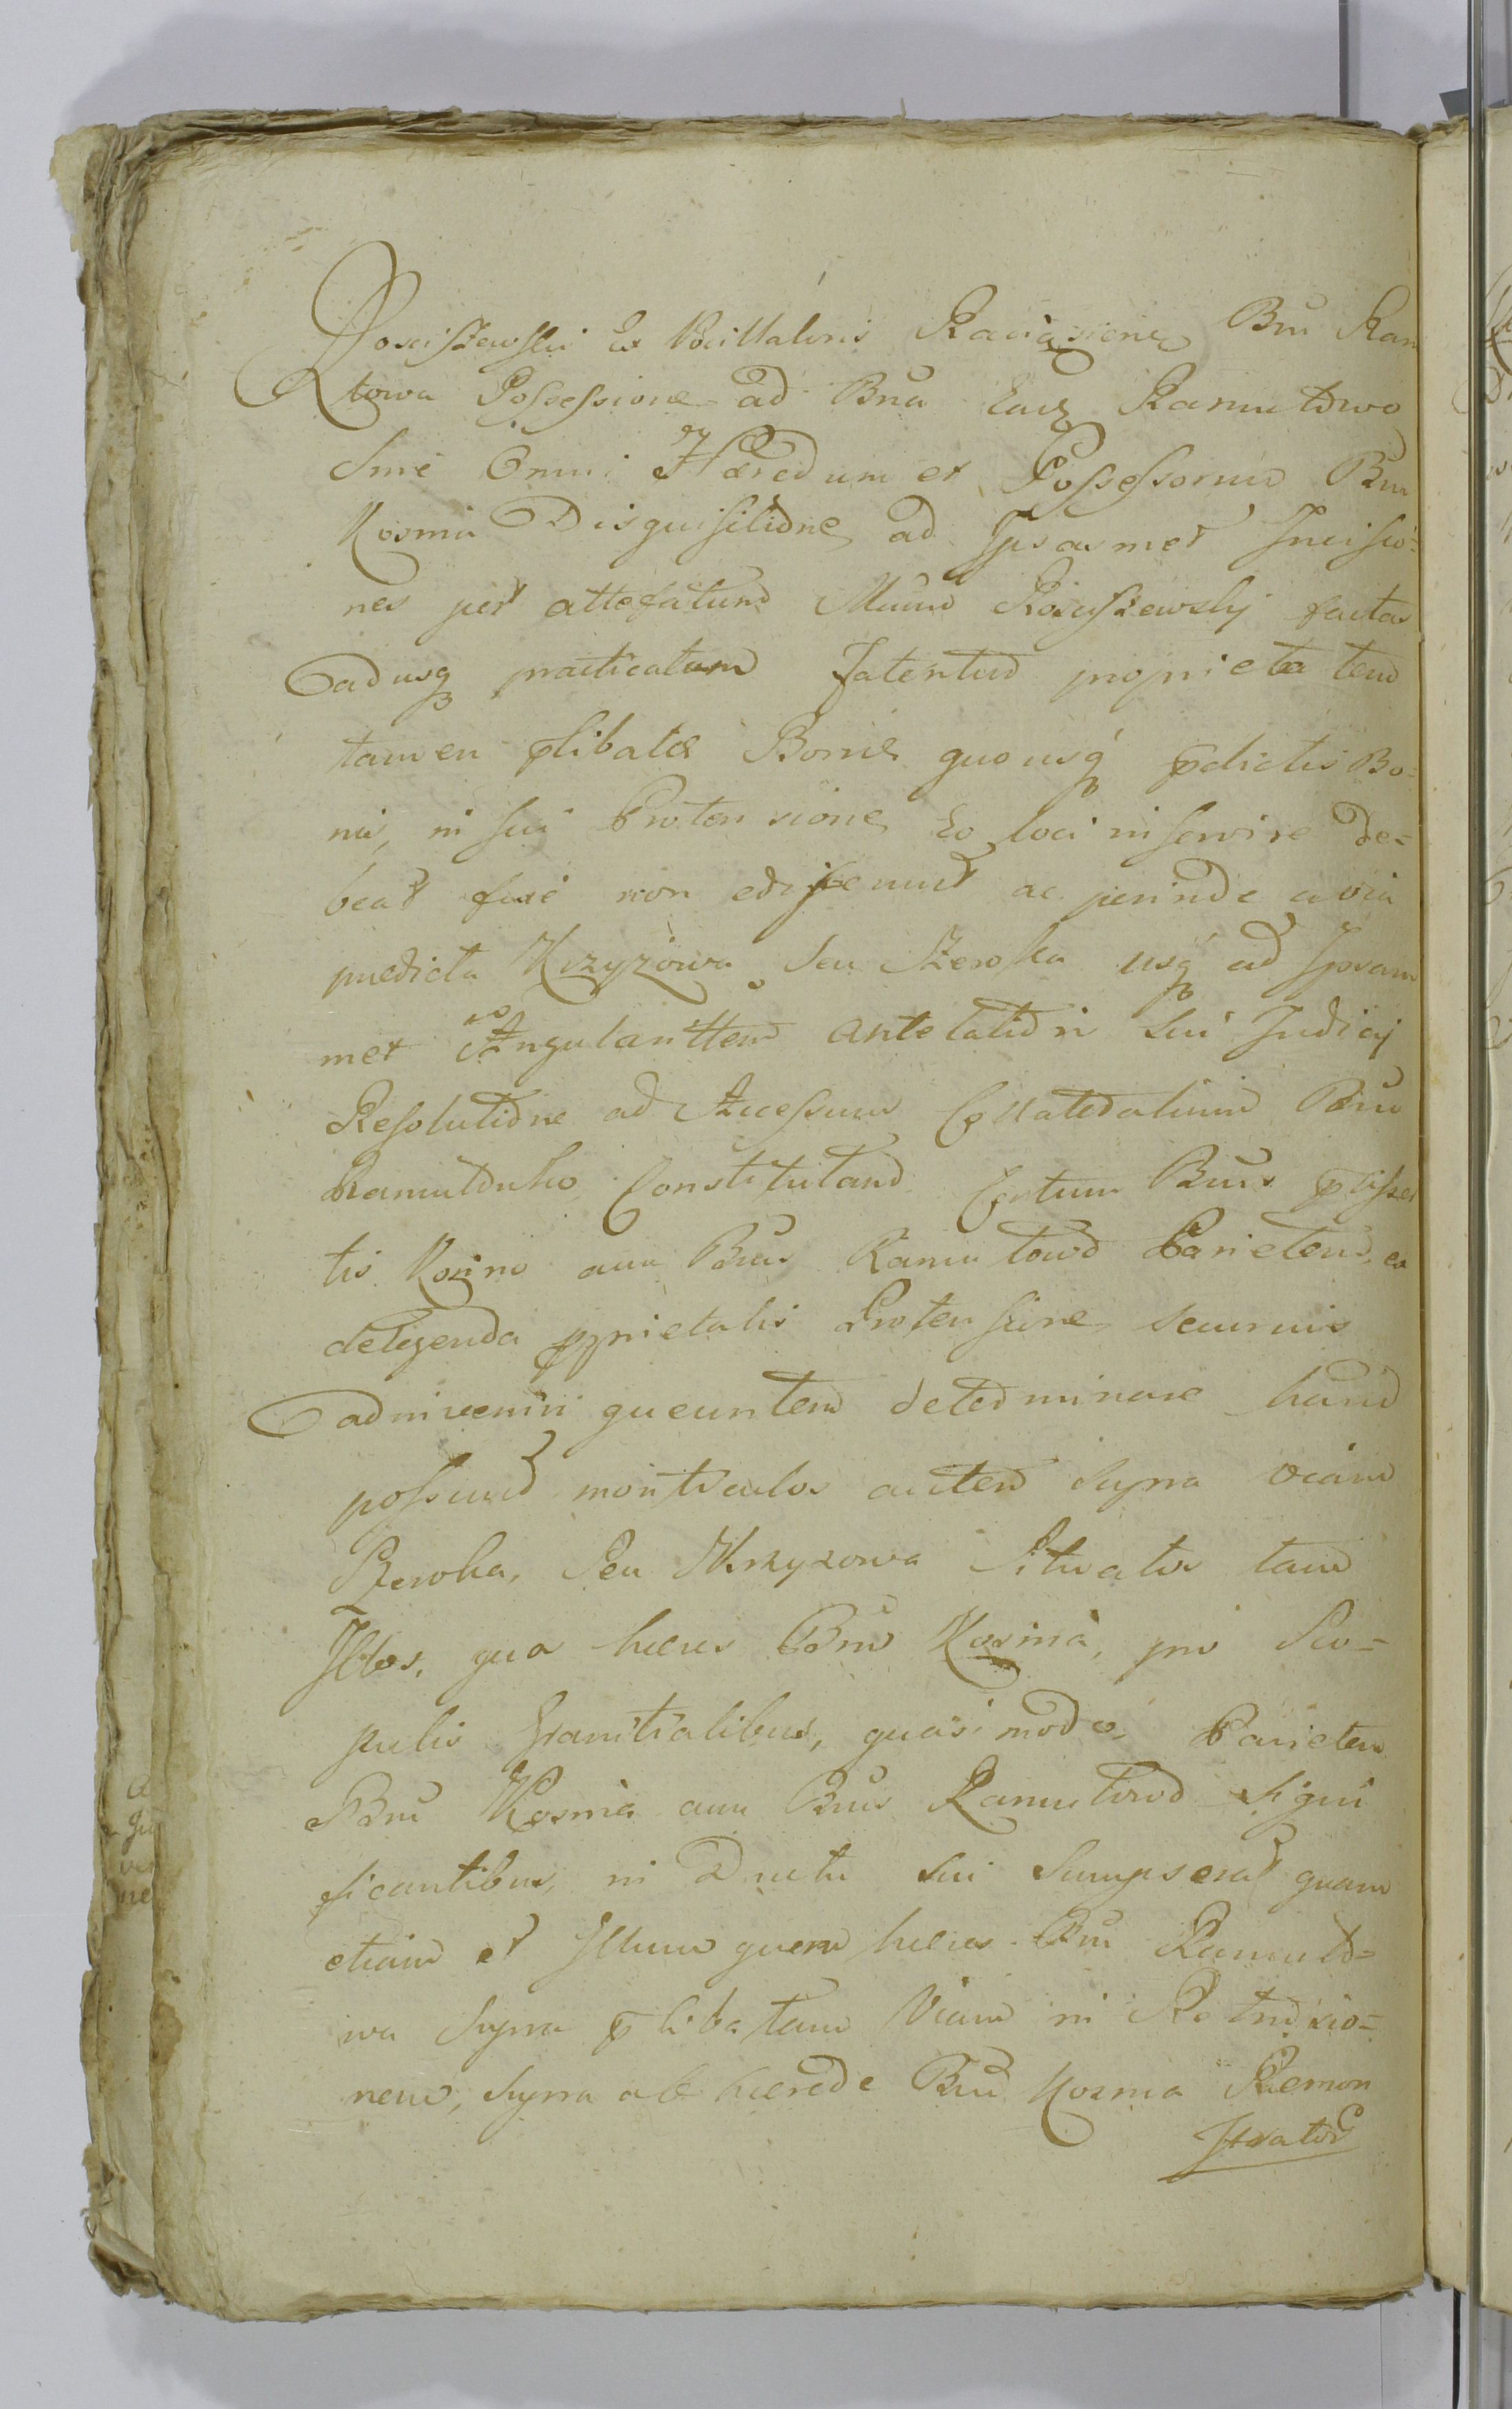 Rosciszewski Ex Raciązione Bru Ram
towa Possessione ad Bna Eads Ramutowo
Sine Omni Hæredum et Possessorum Bru
Kosmin Disquisitione ad Ipsasmet Incisio=
nes per attefatum Mcum Rosciszewskj factas
adusq practicatum fatentur proprietatem
tamen plibatæ Bonis quousq pdictis Bo=
nis, in sui Protensione Eo loci inservire de=
beat fuse non ac perinde a via
predicta Krzyzowa seu Szeroka usq ad Ipsam
met Angularittem antelatior in sui Judicij
Resolutione ad Accessum Collateralium Bru
Ramutowko Constitutam Certum Bnis
tis Kozmo cum Bnis Ramutowo Parietem, ex
deligenda pprietatis Protensione securius
adinveniri queuntem determinare haud
possunt monticulos autem supra viam
Szeroka, Seu Krzyzowa Situatos tam
Illos, qua hæres Bru Kosmia, pro Sco=
pulis Granitialibus, quasi modo Parietem
Bru Kosmia cum Bnis Ramutowo Signi
ficantibus, in Ductu sui Sumpserat quam
etiam et Illum quem hæres Bru Ramuto=
wa Supra plibatam Viam in
nem, supra ab hærede Bru Kozma Demon
stratos